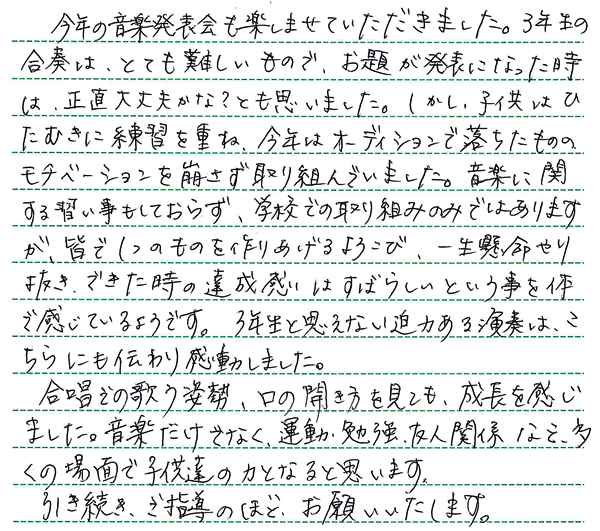 今年の音楽発表会も楽しませていただきました。3年生の
合奏は、とても難しいもので、お題が発表になった時
は、正直大丈夫かな?とも思いました。しかし、子供はひ
たむきに練習を重ね、今年はオーディションで落ちたものの
モチベーションを崩さず取り組んでいました。音楽に関
する習い事もしておらず、学校での取り組みのみではあります
が、皆で1つのものを作りあげるよろこび、一生懸命やり
抜き、できた時の達成感はすばらしいという事を体
で感じているようです。3年生と思えない迫力ある演奏は、こ
ちらにも伝わり感動しました。
合唱での歌う姿勢、口の開き方を見ても、成長を感じ
ました。音楽だけでなく、運動、勉強、友人関係など、多
くの場面で子供達の力となると思います。
引き続き、ご指導のほど、お願いいたします。